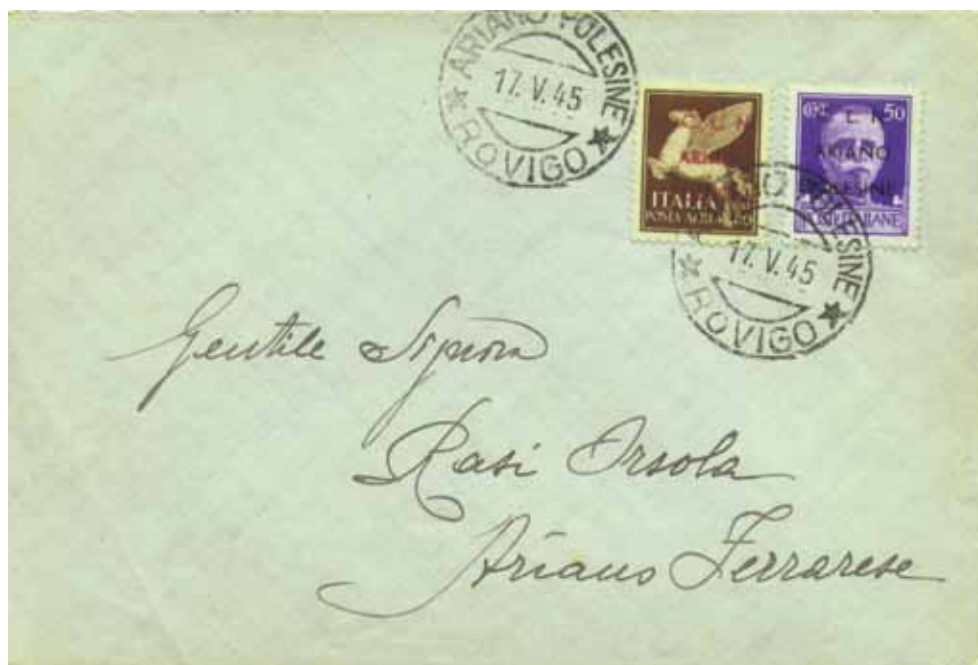 ARIANO POLESINE
17. V. 45
ROVIGO
ITALIA
POSTA AEREA
50
L. 1
ARIANO
POLESINE
POSTE ITALIANE
POLESINE
17. V. 45
ROVIGO
Gentile Signora
Rasi Orsola
Ariano Ferrarese